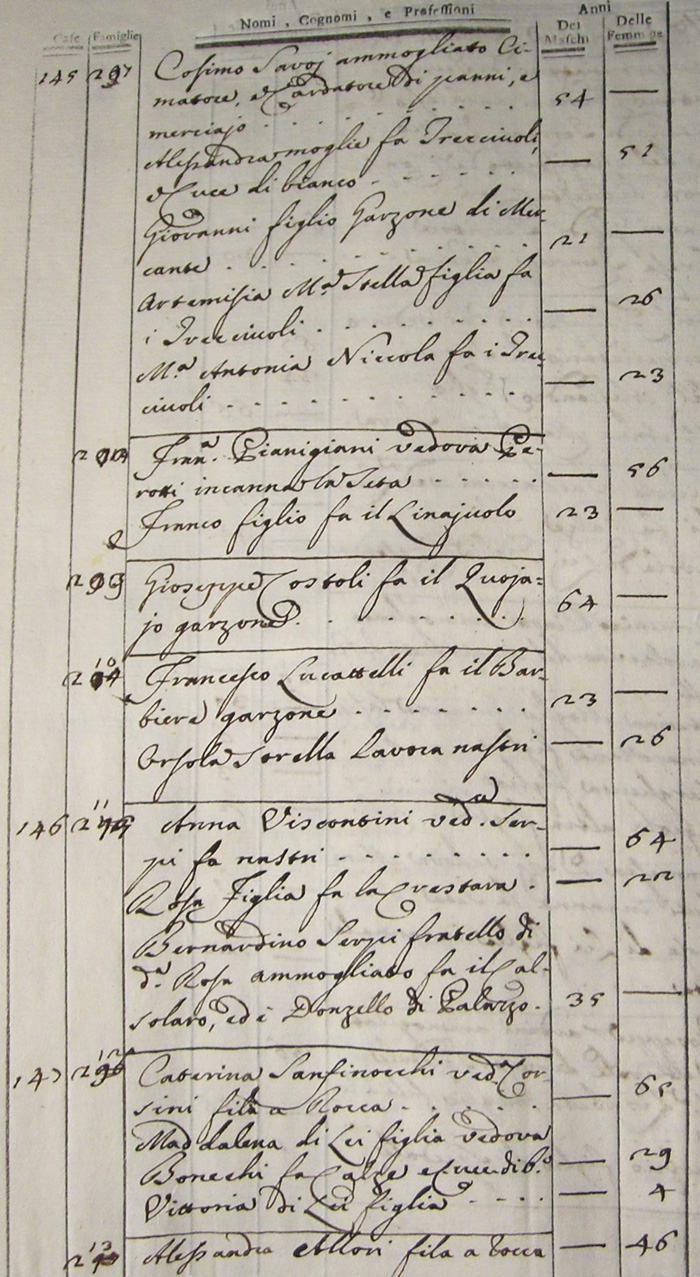 Nomi, Cognomi, e Professioni
Anni
Case Famiglie
Dei Maschi
Delle Femmine
145 297 Cosimo Savoj ammogliato Ci-
matore, e Cardatore di panni, e 54 —
merciajo
Alessandra moglie fa Trecciuoli, — 51
e Cuce di bianco
Giovanni figlio Garzone di Mer- 21 —
cante
Artemisia Ma. Stella figlia fa — 26
i Trecciuoli
Ma. Antonia Niccola fa i Trec- — 23
ciuoli
Frana. Pianigiani vedova Pe-
rotti incanna la Seta — 56
Franco figlio fa il Linajuolo 23 —
Giuseppe Costoli fa il Quoja-
jo garzone 64 —
Francesco Lucattelli fa il Bar-
biere garzone 23 —
Orsola Sorella Lavora nastri — 26
146 Anna Viscontini ved. Ser-
pi fa nastri — 64
Rosa Figlia fa la Crestara — 22
Bernardino Serpi fratello di
da. Rosa ammogliato fa il Cal-
solaro, ed è Donzello di Palazzo 35 —
147 Caterina Sanfinocchi ved. Cor-
sini fila a Rocca — 65
Maddalena di Lei figlia vedova
Bonechi fa Calze e Cuce di bo. — 29
Vittoria di Lei figlia — 4
Alessandra Allori fila a rocca — 46